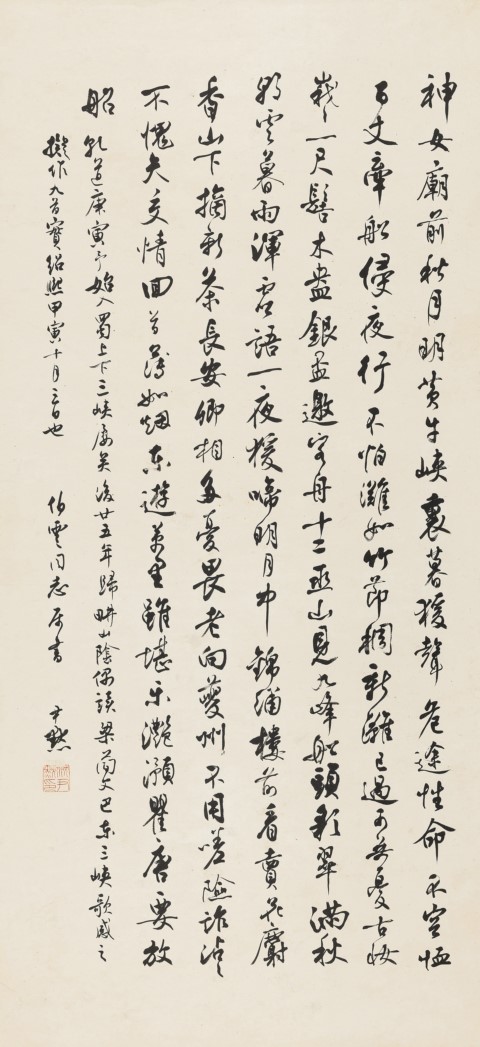 神女廟前秋月明黃牛峽裏暮猨聲危途性命不容恤
百丈牽船侵夜行不怕灘如竹節稠新灘已過可無憂古妝
峩〻一尺髻木盎銀盃邀客舟十二巫山見九峰船頭彩翠滿秋
朝雲暮雨渾虛語一夜猨啼明月中錦繡樓前看賣花麝
香山下摘新茶長安卿相多憂畏老向夔州不用嗟險詐沾〻
不愧天交情回首薄如烟東遊萬里雖堪樂灩澦瞿唐要放
船 乾道庚寅予始入蜀上下三峽屢矣後廿五年歸畊山陰偶讀梁簡文巴東三峽歌感之
擬作九首實紹熙甲寅十月二日也 伯雲同志屬書 尹默